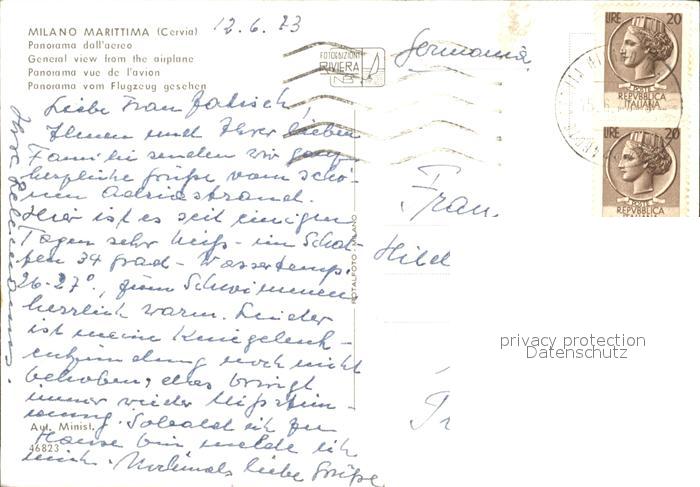 MILANO MARITTIMA (Cervia)
Panorama dall'aereo
General view from the airplane
Panorama vue de l'avion
Panorama vom Flugzeug gesehen
12.6.73
Liebe Frau
Ihnen und Ihrer lieben
Familie senden wir ganz
herzliche Grüße vom schö-
nen Adriastrand.
Hier ist es seit einigen
Tagen sehr heiß - im Schat-
ten 34 grad - Wassertemp.
26-27°, zum Schwimmen
herrlich warm. Leider
ist meine Kniegelenk-
entzündung noch nicht
behoben, das bringt
immer wieder Mißstim-
mung. Sobald ich zu
Hause bin melde ich
mich. Nochmals liebe Grüße
Ihre
Aut. Minist.
46823
ROTALFOTO - MILANO
FOTOEDIZIONI
RIVIERA
Germania
Frau
Hild
LIRE 20
POSTE
REPVBBLICA
ITALIANA
LIRE 20
POSTE
REPVBBLICA
ITALIANA
privacy protection
Datenschutz